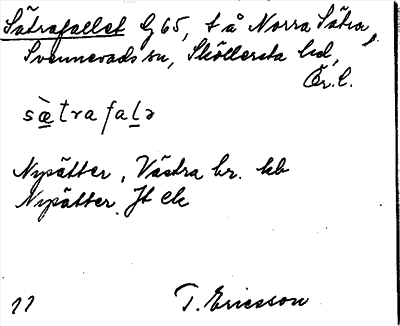 Sätrafallet G 65, t å Norra Sätra,
Svennevads sn, Sköllersta hd,
Ör. l.
sæ̀trafalə
Nysätter, Västra br. kb
Nysätter Jt Ek
77 T. Ericsson